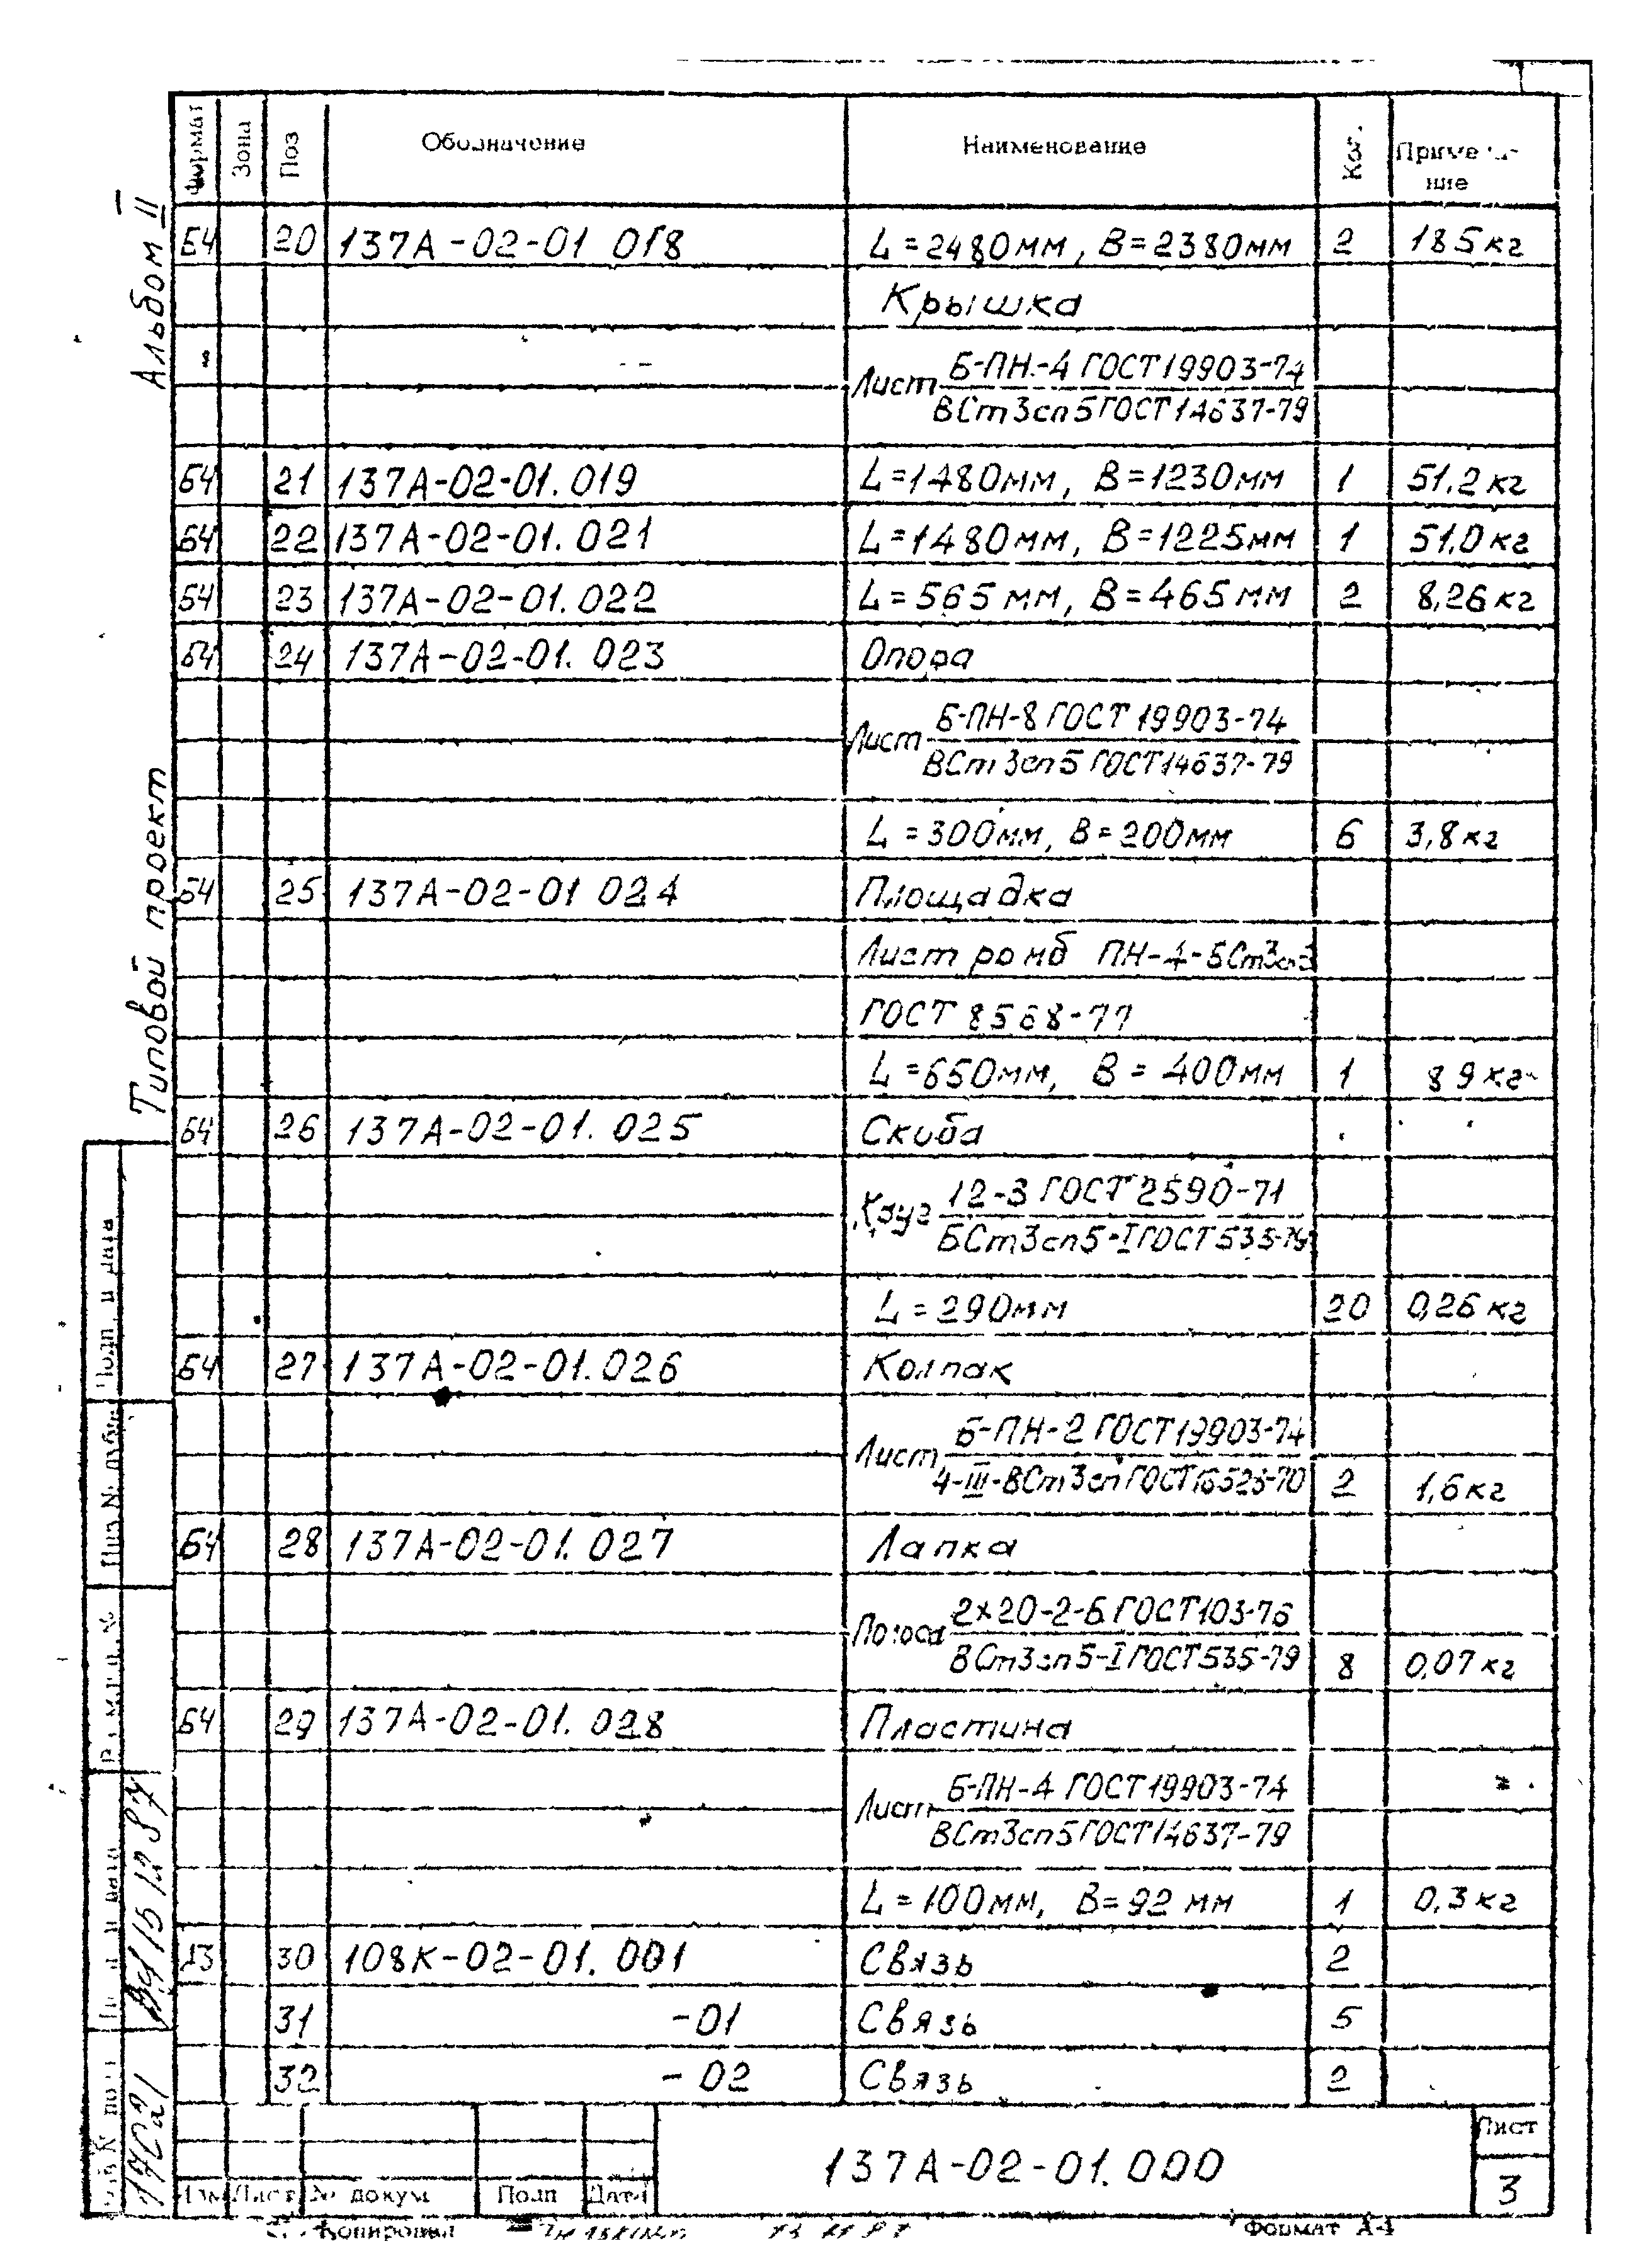 Альбом II
Типовой проект
Формат Зона Поз Обозначение Наименование Кол. Примеча-
ние
Б4 20 137А-02-01 018 L=2480мм, B=2380мм 2 185кг
Крышка
Лист Б-ПН-4 ГОСТ 19903-74
ВСт3сп5 ГОСТ 14637-79
Б4 21 137А-02-01.019 L=1480мм, B=1230мм 1 51,2кг
Б4 22 137А-02-01.021 L=1480мм, B=1225мм 1 51,0кг
Б4 23 137А-02-01.022 L=565мм, B=465мм 2 8,26кг
Б4 24 137А-02-01.023 Опора
Лист Б-ПН-8 ГОСТ 19903-74
ВСт3сп5 ГОСТ 14637-79
L=300мм, B=200мм 6 3,8кг
Б4 25 137А-02-01 024 Площадка
Лист ромб ПН-4-БСт3сп3
ГОСТ 8568-77
L=650мм, B=400мм 1 8 9кг
Б4 26 137А-02-01.025 Скоба
Круг 12-3 ГОСТ 2590-71
БСт3сп5-I ГОСТ 535-79
L=290мм 20 0,26кг
Б4 27 137А-02-01.026 Колпак
Лист Б-ПН-2 ГОСТ 19903-74
4-III-ВСт3сп ГОСТ 16523-70 2 1,6кг
Б4 28 137А-02-01.027 Лапка
Полоса 2х20-2-Б ГОСТ 103-76
ВСт3сп5-I ГОСТ 535-79 8 0,07кг
Б4 29 137А-02-01.028 Пластина
Лист Б-ПН-4 ГОСТ 19903-74
ВСт3сп5 ГОСТ 14637-79
L=100мм, B=92 мм 1 0,3кг
А3 30 108К-02-01.001 Связь 2
31 -01 Связь 5
32 -02 Связь 2
137А-02-01.000
Лист
3
Изм Лист № докум Подп Дата
Копировал
Формат А4
Подп. и дата
Инв № дубл
15 12 87